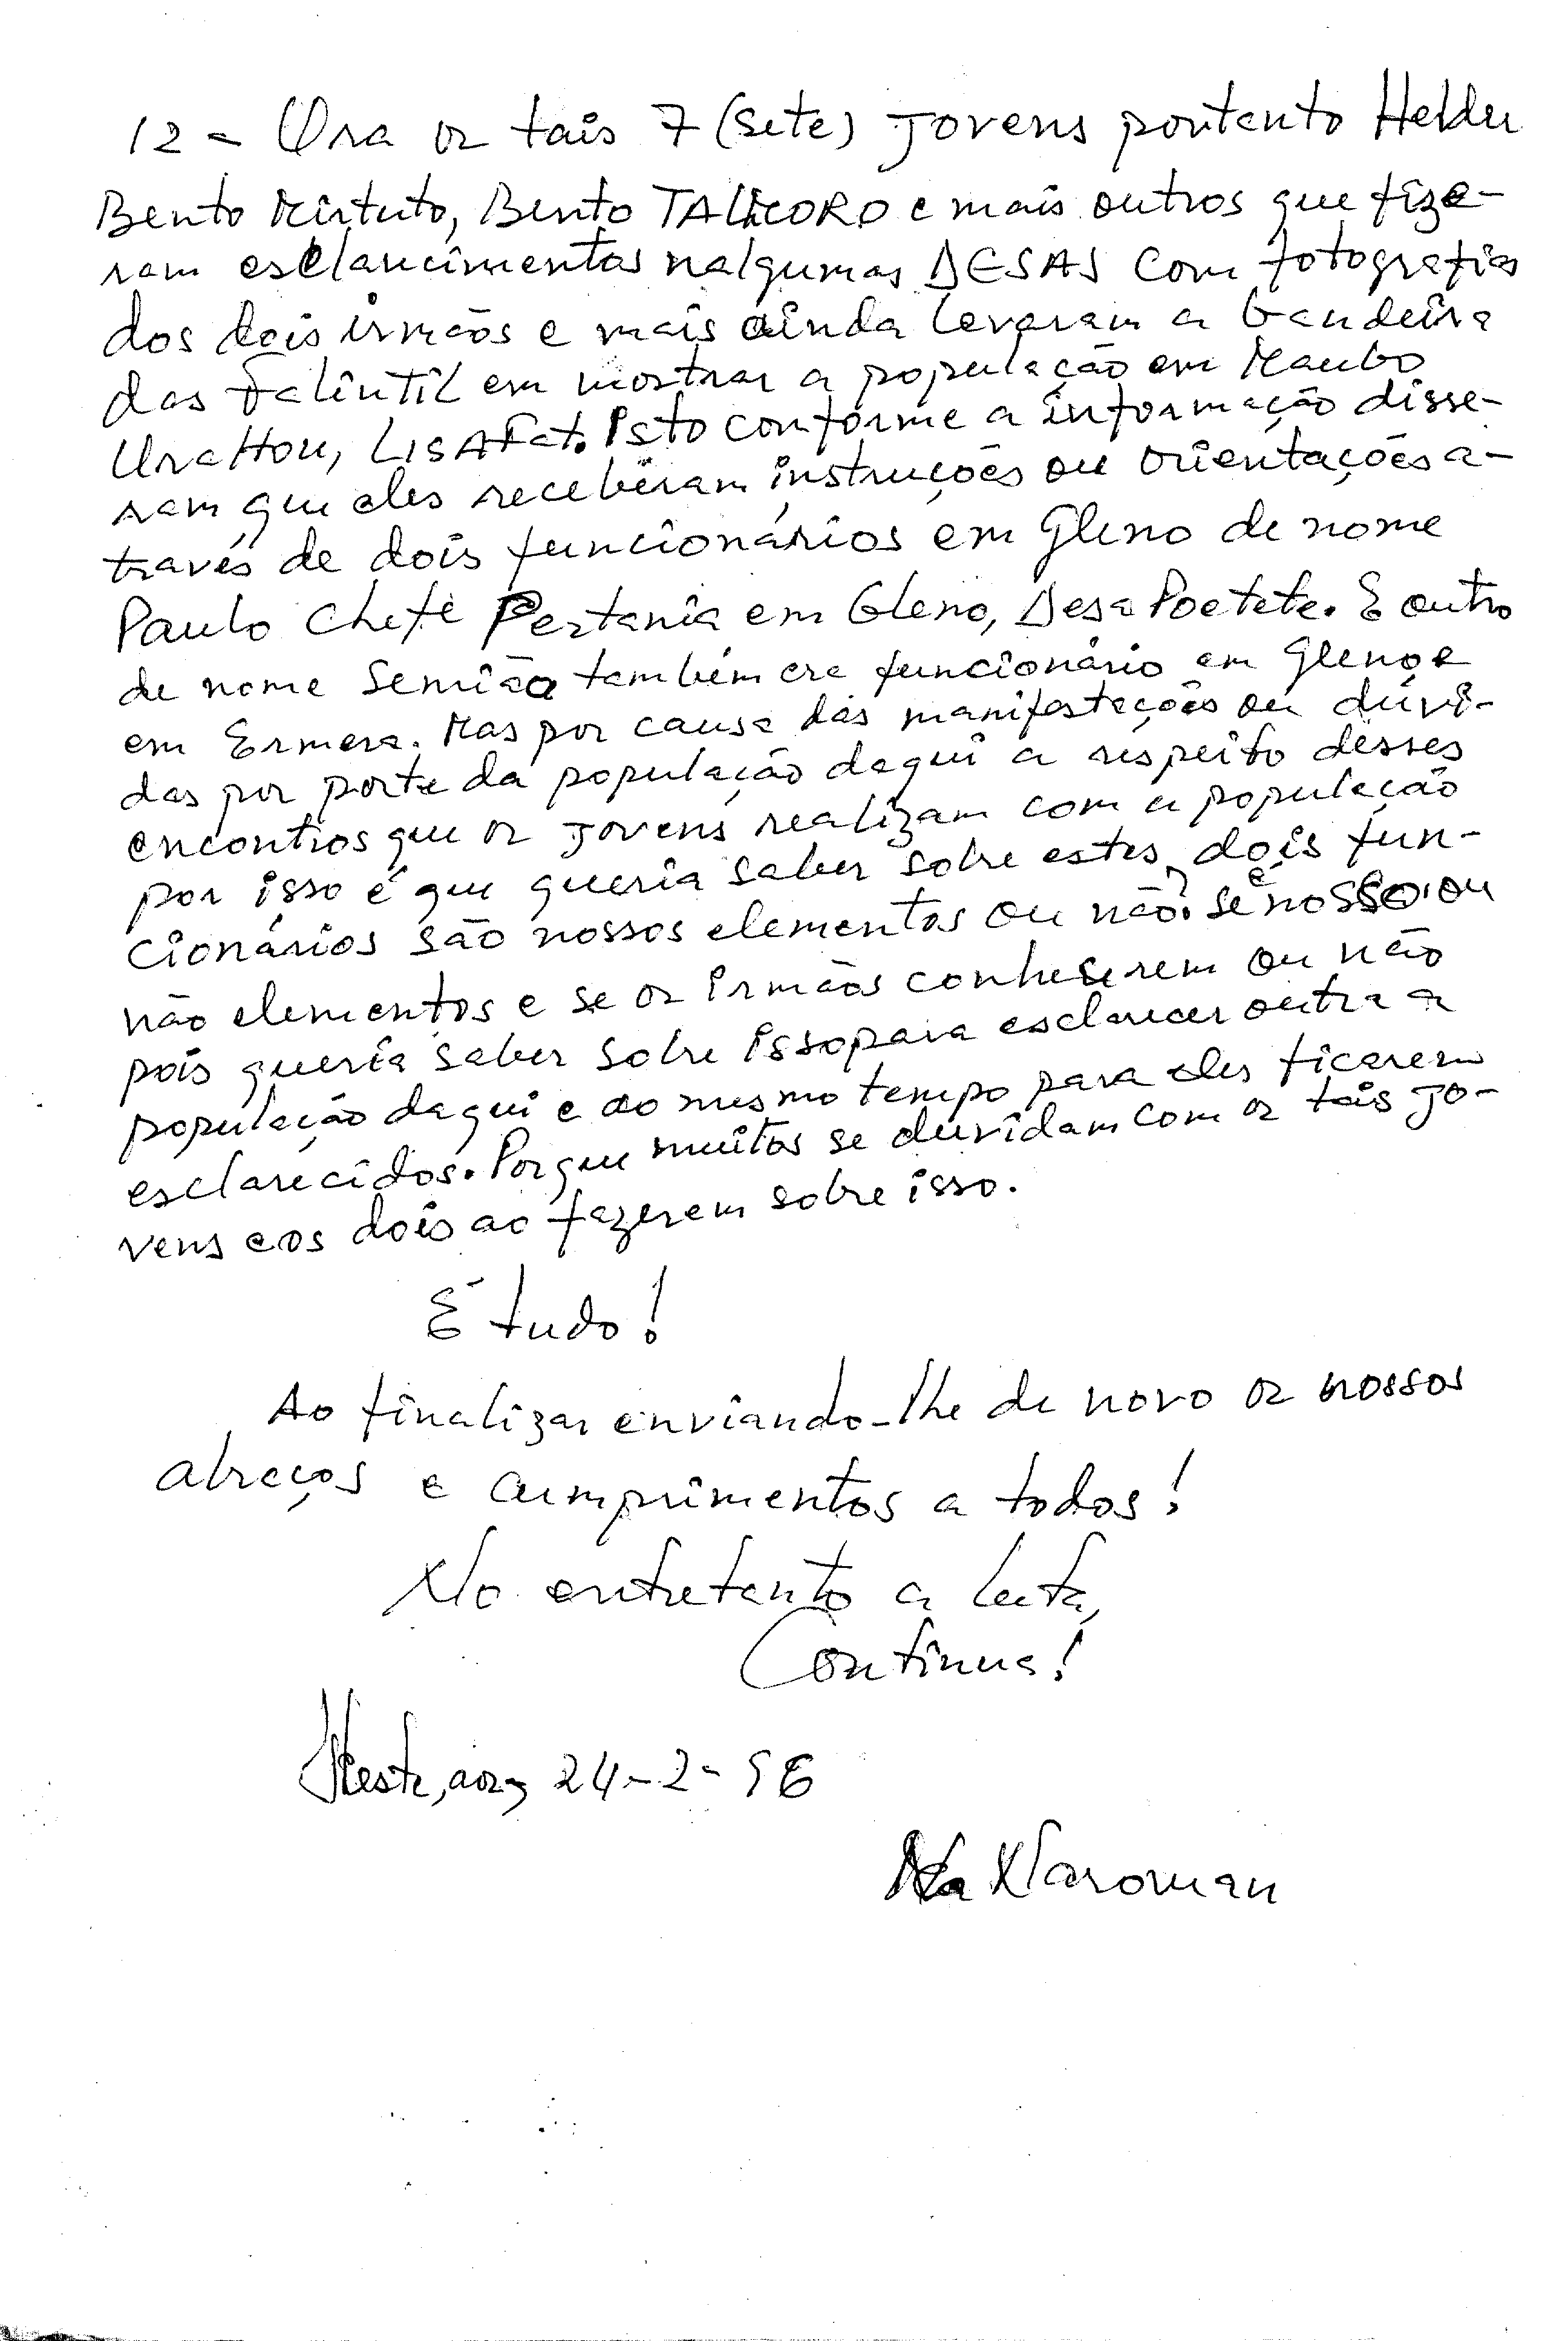 12 - Ora os tais 7 (sete) jovens portanto Helder
Bento Mirtuto, Bento TALICORO e mais outros que fize-
ram esclarecimentos nalgumas DESAS com fotografias
dos dois irmãos e mais ainda levaram a bandeira
das Falintil em mostrar a população em Maubo
UraHou, LISAFat. Isto conforme a informação disse-
ram que eles receberam instruções ou orientações a-
través de dois funcionários em Gleno de nome
Paulo Chefe Pertania em Gleno, Desa Poetete. E outro
de nome Semião também era funcionário em Gleno e
em Ermera. Mas por causa das manifestações ou dúvi-
das por parte da população daqui a respeito desses
encontros que os jovens realizam com a população
por isso é que queria saber sobre estes dois fun-
cionários são nossos elementos ou não? Se é nosso ou
não elementos e se os irmãos conheserem ou não
pois queria saber sobre isso para esclarecer outra a
população daqui e ao mesmo tempo para eles ficarem
esclarecidos. Porque muitos se duvidam com os tais jo-
vens e os dois ao fazerem sobre isso.
É tudo!
Ao finalizar enviando-lhe de novo os nossos
abraços e cumprimentos a todos!
No entretanto a luta,
Continua!
Neste, aos, 24-2-96
Naroman